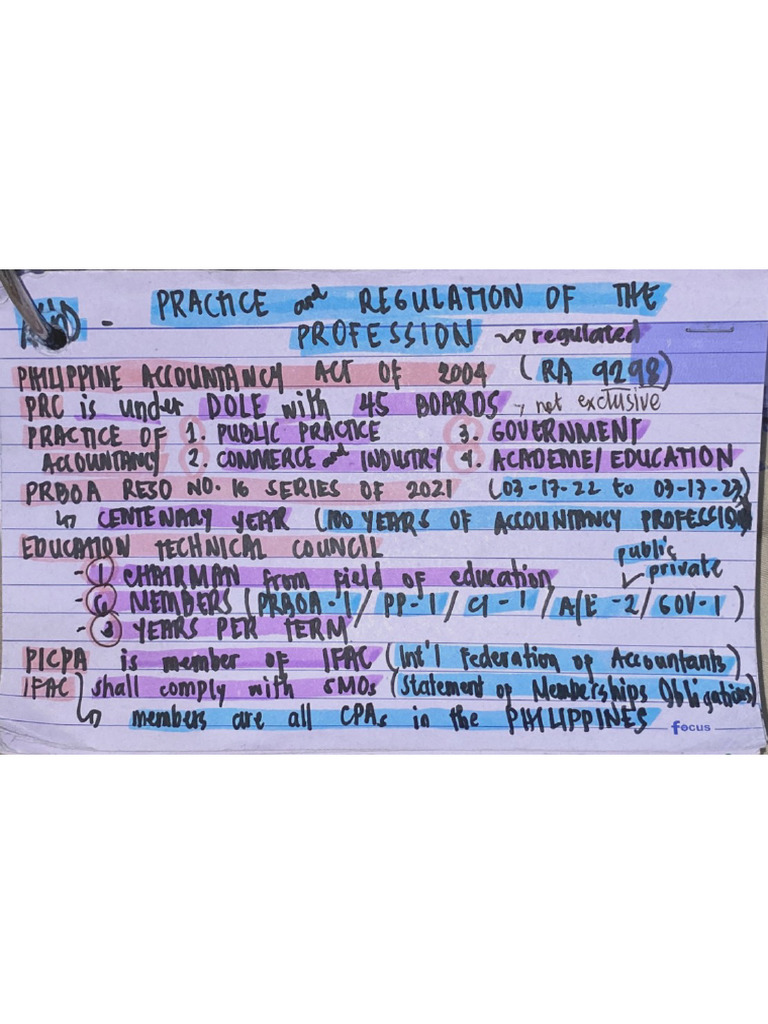 PRACTICE and REGULATION OF THE
PROFESSION regulated
PHILIPPINE ACCOUNTANCY ACT OF 2004 (RA 9298)
PRC is under DOLE with 45 BOARDS → not exclusive
PRACTICE OF 1. PUBLIC PRACTICE 3. GOVERNMENT
ACCOUNTANCY 2. COMMERCE and INDUSTRY 4. ACADEME/EDUCATION
PRBOA RESO NO. 16 SERIES OF 2021 (03-17-22 to 03-17-23)
↳ CENTENARY YEAR (100 YEARS OF ACCOUNTANCY PROFESSION
EDUCATION TECHNICAL COUNCIL public
- 1 CHAIRMAN from field of education private
- 6 MEMBERS (PRBOA-1/ PP-1/ CI-1/ A/E-2/ GOV-1)
- 3 YEARS PER TERM
PICPA is member of IFAC (Int'l Federation of Accountants)
IFAC shall comply with SMOs (Statement of Memberships Obligations)
↳ members are all CPAs in the PHILIPPINES
focus